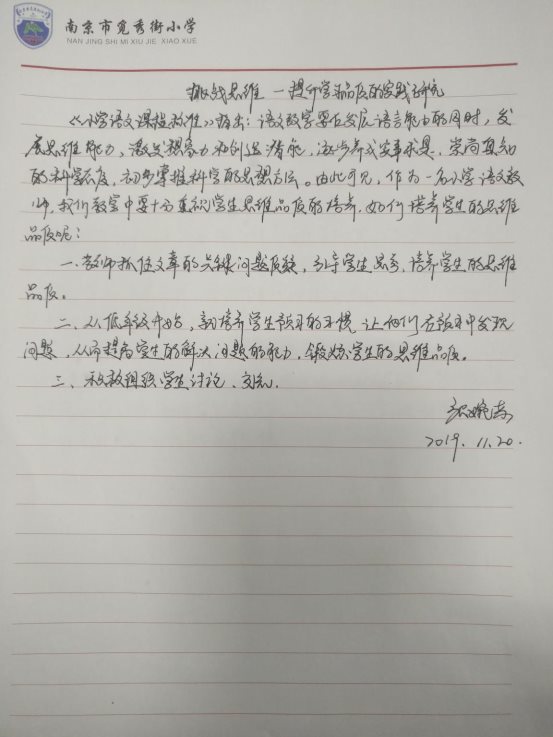 南京市觅秀街小学
NAN JING SHI MI XIU JIE XIAO XUE
挑战思维 一提升学习品质的实践研究
《小学语文课程标准》指出：语文教学要在发展语言能力的同时，发
展思维能力，激发想象力和创造潜能，逐步养成实事求是、崇尚真知
的科学态度，初步掌握科学的思想方法。由此可见，作为一名小学语文教
师，我们教学中要十分重视学生思维品质的培养，如何培养学生的思维
品质呢：
一、教师抓住文章的关键问题质疑，引导学生思考，培养学生的思维
品质。
二、从低年级开始，就培养学生预习的习惯，让他们在预习中发现
问题，从而提高学生的解决问题的能力，锻炼学生的思维品质。
三、积极组织学生讨论、交流.
2019. 11. 20.